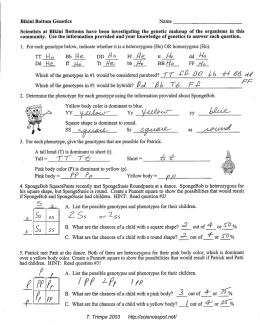 Bikini Bottom Genetics Name
Scientists at Bikini Bottoms have been investigating the genetic makeup of the organisms in this
community. Use the information provided and your knowledge of genetics to answer each question.
1. For each genotype below, indicate whether it is a heterozygous (He) OR homozygous (Ho).
TT Ho Bb He DD Ho Ff He tt Ho dd Ho
Dd He ff Ho Tt He bb Ho BB Ho FF Ho
Which of the genotypes in #1 would be considered purebred? TT ff DD bb tt BB dd
FF
Which of the genotypes in #1 would be hybrids? Dd Bb Tt Ff
2. Determine the phenotype for each genotype using the information provided about SpongeBob.
Yellow body color is dominant to blue.
YY yellow Yy yellow yy blue
Square shape is dominant to round.
SS square Ss square ss round
3. For each phenotype, give the genotypes that are possible for Patrick.
A tall head (T) is dominant to short (t).
Tall = TT Tt Short = tt
Pink body color (P) is dominant to yellow (p).
Pink body = PP Pp Yellow body = pp
4. SpongeBob SquarePants recently met SpongeSusie Roundpants at a dance. SpongeBob is heterozygous for
his square shape, but SpongeSusie is round. Create a Punnett square to show the possibilities that would result
if SpongeBob and SpongeSusie had children. HINT: Read question #2!
A. List the possible genotypes and phenotypes for their children.
2 Ss 2ss
B. What are the chances of a child with a square shape? 2 out of 4 or 50%
C. What are the chances of a child with a round shape? 2 out of 4 or 50%
5. Patrick met Patti at the dance. Both of them are heterozygous for their pink body color, which is dominant
over a yellow body color. Create a Punnett square to show the possibilities that would result if Patrick and Patti
had children. HINT: Read question #3!
A. List the possible genotypes and phenotypes for their children.
1 PP 2Pp 1pp
B. What are the chances of a child with a pink body? 3 out of 4 or 75%
C. What are the chances of a child with a yellow body? 1 out of 4 or 25%
T. Trimpe 2003 http://sciencespot.net/